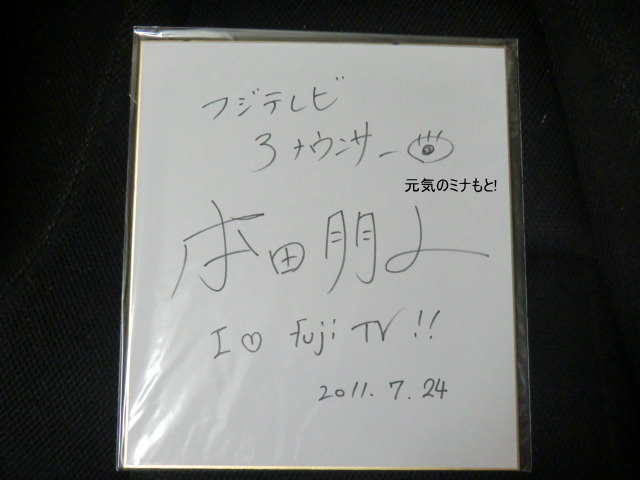 フジテレビ
アナウンサー
元気のミナもと!
本田朋子
I ♡ fuji TV !!
2011. 7. 24